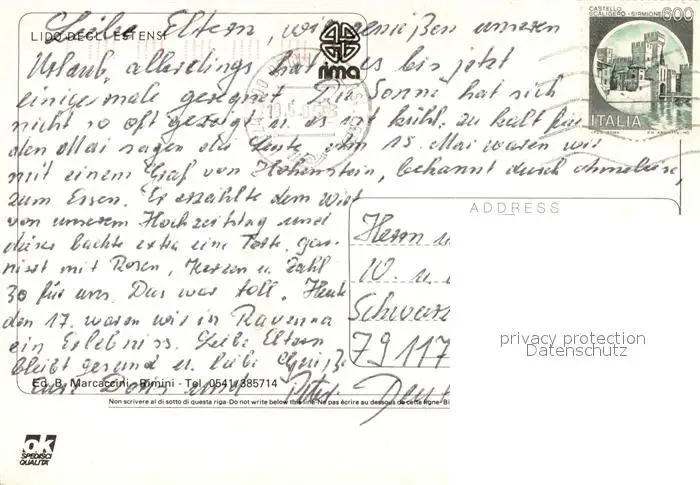 LIDO DEGLI ESTENSI
rima
CASTELLO
SCALIGERO - SIRMIONE
600
ITALIA
Liebe Eltern, wir genießen unseren
Urlaub, allerdings hat es bis jetzt
einigemale geregnet. Die Sonne hat sich
nicht so oft gezeigt u. es ist kühl, zu kalt für
den Mai sagen die Leute. Am 15. Mai waren wir
mit einem Graf von Hohenstein, bekannt durch
zum Essen. Er erzählte dem Wirt
von unserem Hochzeitstag und
dieser backte extra eine Torte, gar-
niert mit Rosen, Herzen u. Zahl
30 für uns. Das war toll. Heute
den 17. waren wir in Ravenna
ein Erlebniss. Liebe Eltern
bleibt gesund u. liebe Grüße
Eure Doris und Peter
ADDRESS
Herrn u.
W. u.
Schwarz
79117
Deut
privacy protection
Datenschutz
Ed. B. Marcaccini - Rimini - Tel. 0541/385714
Non scrivere al di sotto di questa riga-Do not write below this line-Ne pas écrire au dessous de cette ligne-Bi
ok
SPEDISCI
QUALITA'